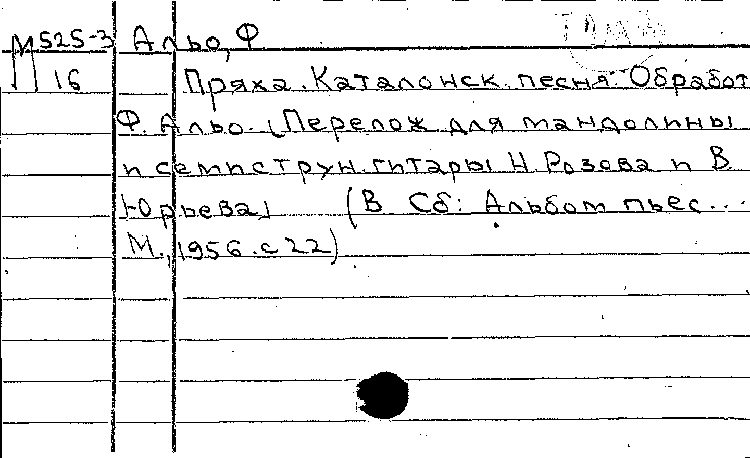 М525-3 Альо, Ф
16 Пряха. Каталонск. песня. Обработ
Ф. Альо. (Перелож для мандолины
и семиструн. гитары Н. Розова и В.
Юрьева) (В Сб: Альбом пьес...
М., 1956. с 22)